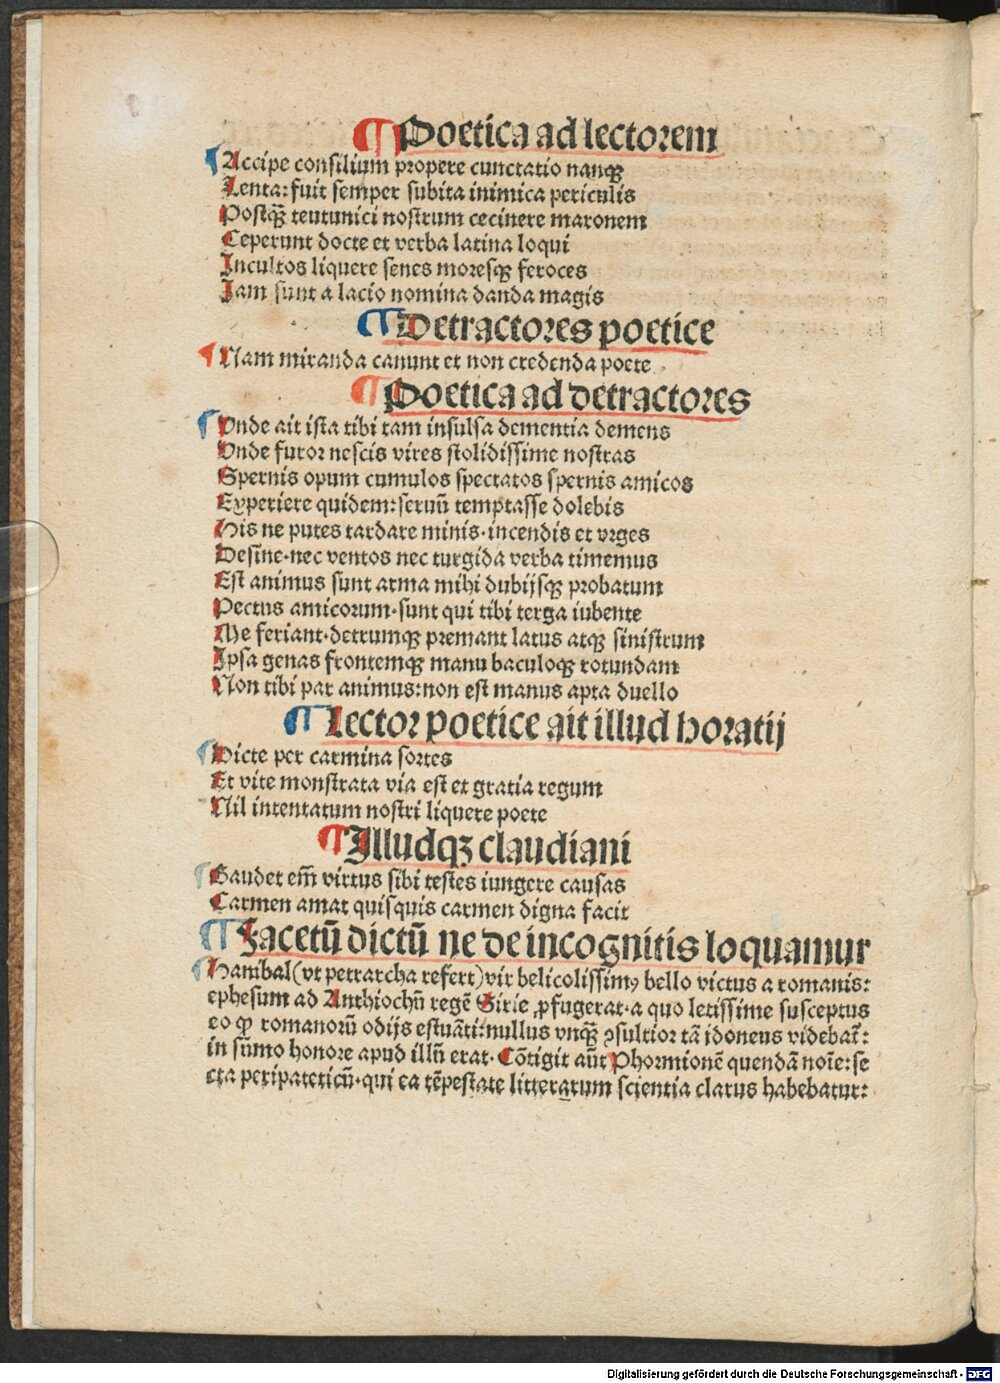 ¶Poetica ad lectorem
¶Accipe consilium propere cunctatio nanqꝫ
Lenta: fuit semper subita inimica periculis
Postqꝫ̄ teutunici nostrum cecinere maronem
Ceperunt docte et verba latina loqui
Incultos liquere senes moresqꝫ feroces
Jam sunt a lacio nomina danda magis
¶Detractores poetice
¶Nam miranda canunt et non credenda poete
¶Poetica ad detractores
¶Vnde ait ista tibi tam insulsa dementia demens
Vnde furor nescis vires stolidissime nostras
Spernis opum cumulos spectatos spernis amicos
Experiere quidem: seruū temptasse dolebis
His ne putes tardare minis· incendis et vrges
Desine· nec ventos nec turgida verba timemus
Est animus sunt arma mihi dubijsqꝫ probatum
Pectus amicorum· sunt qui tibi terga iubente
Me feriant· detrumqꝫ premant latus atqꝫ sinistrum
Ipsa genas frontemqꝫ manu baculoqꝫ rotundam
Non tibi par animus: non est manus apta duello
¶Lector poetice ait illud horatij
¶Dicte per carmina sortes
Et vite monstrata via est et gratia regum
Nil intentatum nostri liquere poete
¶Illudqꝫ claudiani
¶Gaudet em̄ virtus sibi testes iungere causas
Carmen amat quisquis carmen digna facit
¶Facetū dictū ne de incognitis loquamur
¶Hanibal (vt petrarcha refert) vir belicolissimꝰ bello victus a romanis:
ephesum ad Anthiochū regē Sirie ꝓfugerat· a quo letissime susceptus
eo ꝙ romanorū odijs estuāti: nullus vnqꝫ̄ ꝯsultior tā idoneus videbat̄:
in sūmo honore apud illū erat· Cōtigit aūt Phormionē quendā noīe: se
cta peripateticū· qui ea tēpestate litterarum scientia clarus habebatur:
Digitalisierung gefördert durch die Deutsche Forschungsgemeinschaft - DFG